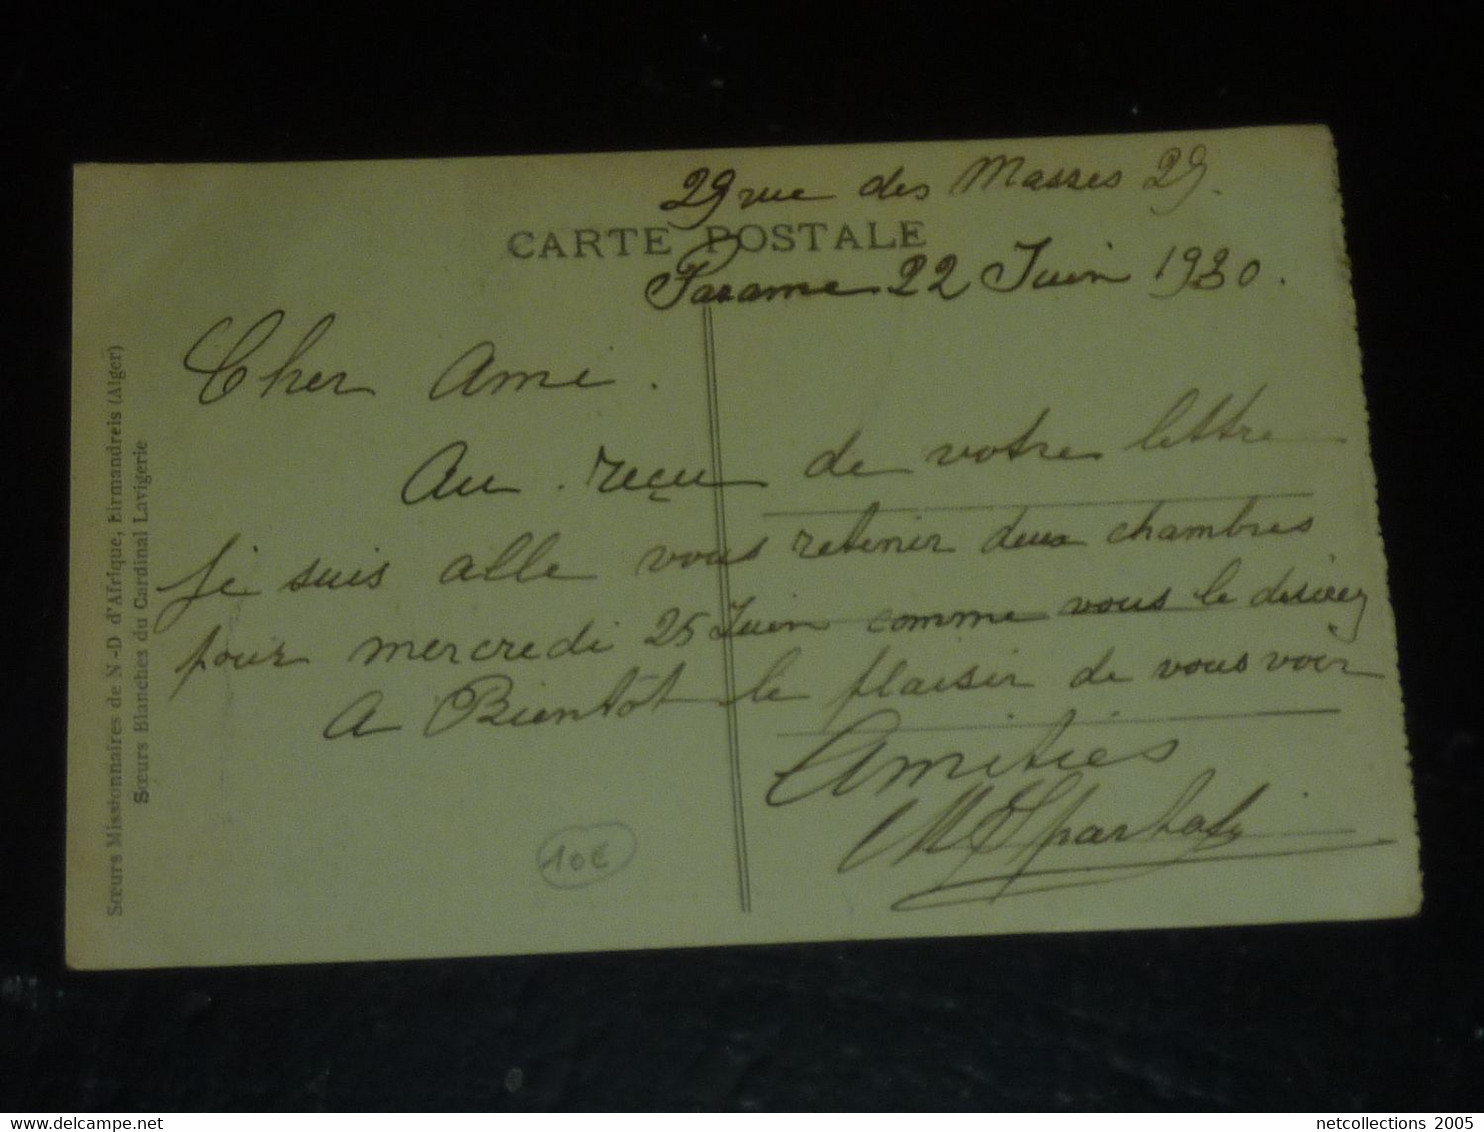 29 rue des Masses 29.
CARTE POSTALE
Parame 22 Juin 1930.
Cher Ami.
Au reçu de votre lettre
je suis allé vous retenir deux chambres
pour mercredi 25 Juin comme vous le désirez
A Bientôt le plaisir de vous voir
Amitiés
10€
Sœurs Missionnaires de N-D d'Afrique, Birmandreis (Alger)
Sœurs Blanches du Cardinal Lavigerie
netcollections 2005